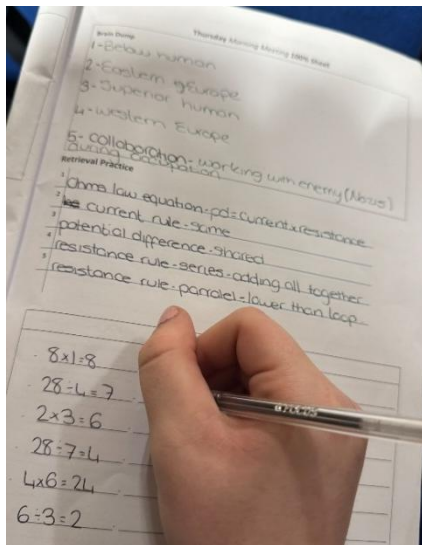 Brain Dump
Thursday Morning Meeting 100% Sheet
1-Below human
2-Eastern Europe
3-Superior human
4-Western Europe
5-collaboration-working with enemy (Nazis)
during occupation
Retrieval Practice
1 Ohms law equation-pd=current x resistance
2 current rule-same
3 potential difference-shared
4 resistance rule-series-adding all together
5 resistance rule-parralel-lower than loop
8x1=8
28÷4=7
2x3=6
28÷7=4
4x6=24
6÷3=2